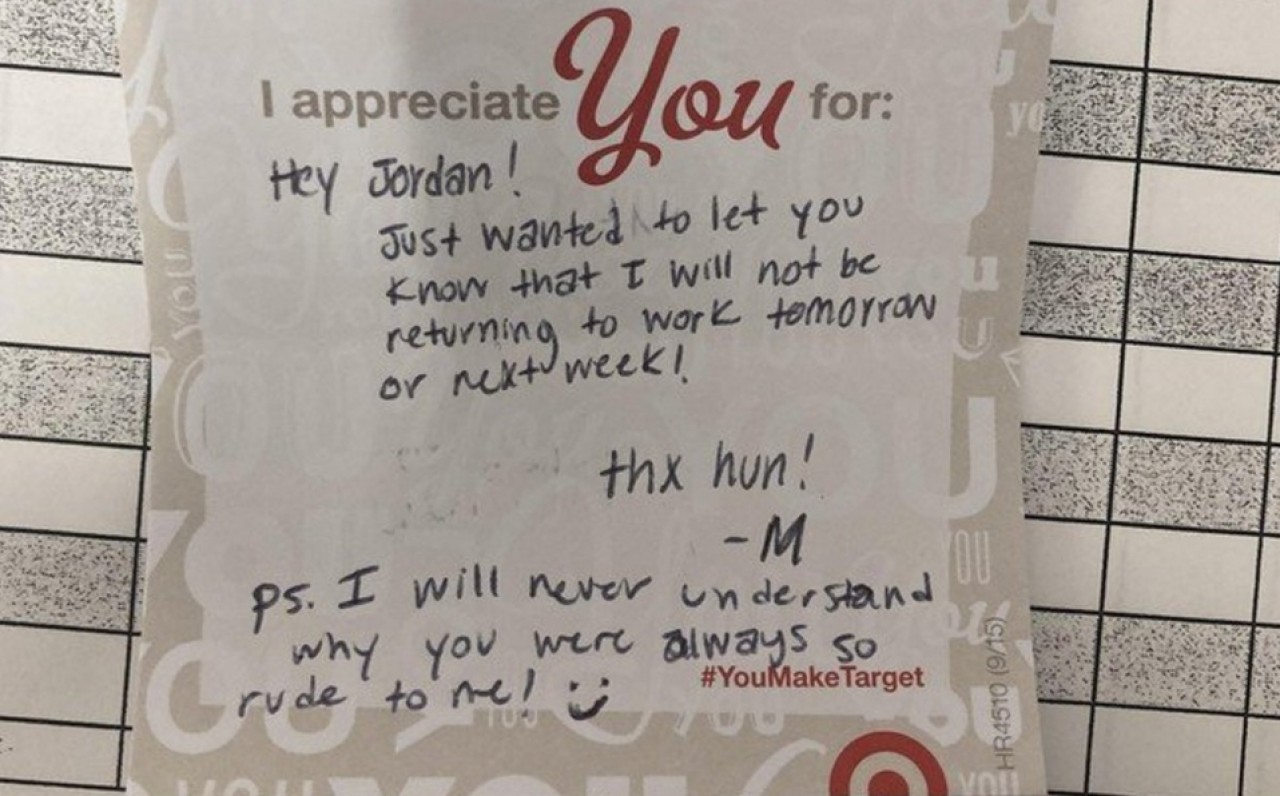 I appreciate You for:
Hey Jordan!
Just wanted to let you
know that I will not be
returning to work tomorrow
or next week!
thx hun!
-M
ps. I will never understand
why you were always so
#YouMakeTarget
rude to me! :)
HR4510 (9/15)